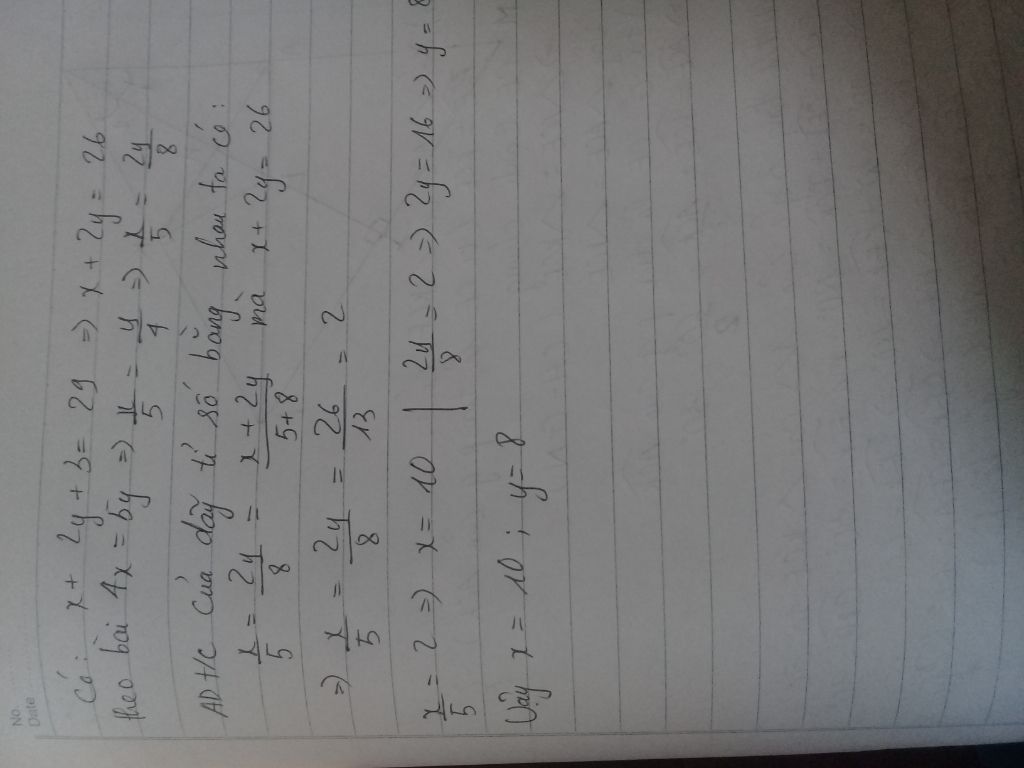 No.
Date
Có: x + 2y + 3 = 29 => x + 2y = 26
theo bài 4x = 5y => x/5 = y/4 => x/5 = 2y/8
ADt/c của dãy tỉ số bằng nhau ta có:
x/5 = 2y/8 = x + 2y/5+8 mà x + 2y = 26
=> x/5 = 2y/8 = 26/13 = 2
x/5 = 2 => x = 10 | 2y/8 = 2 => 2y = 16 => y = 8
Vậy x = 10 ; y = 8